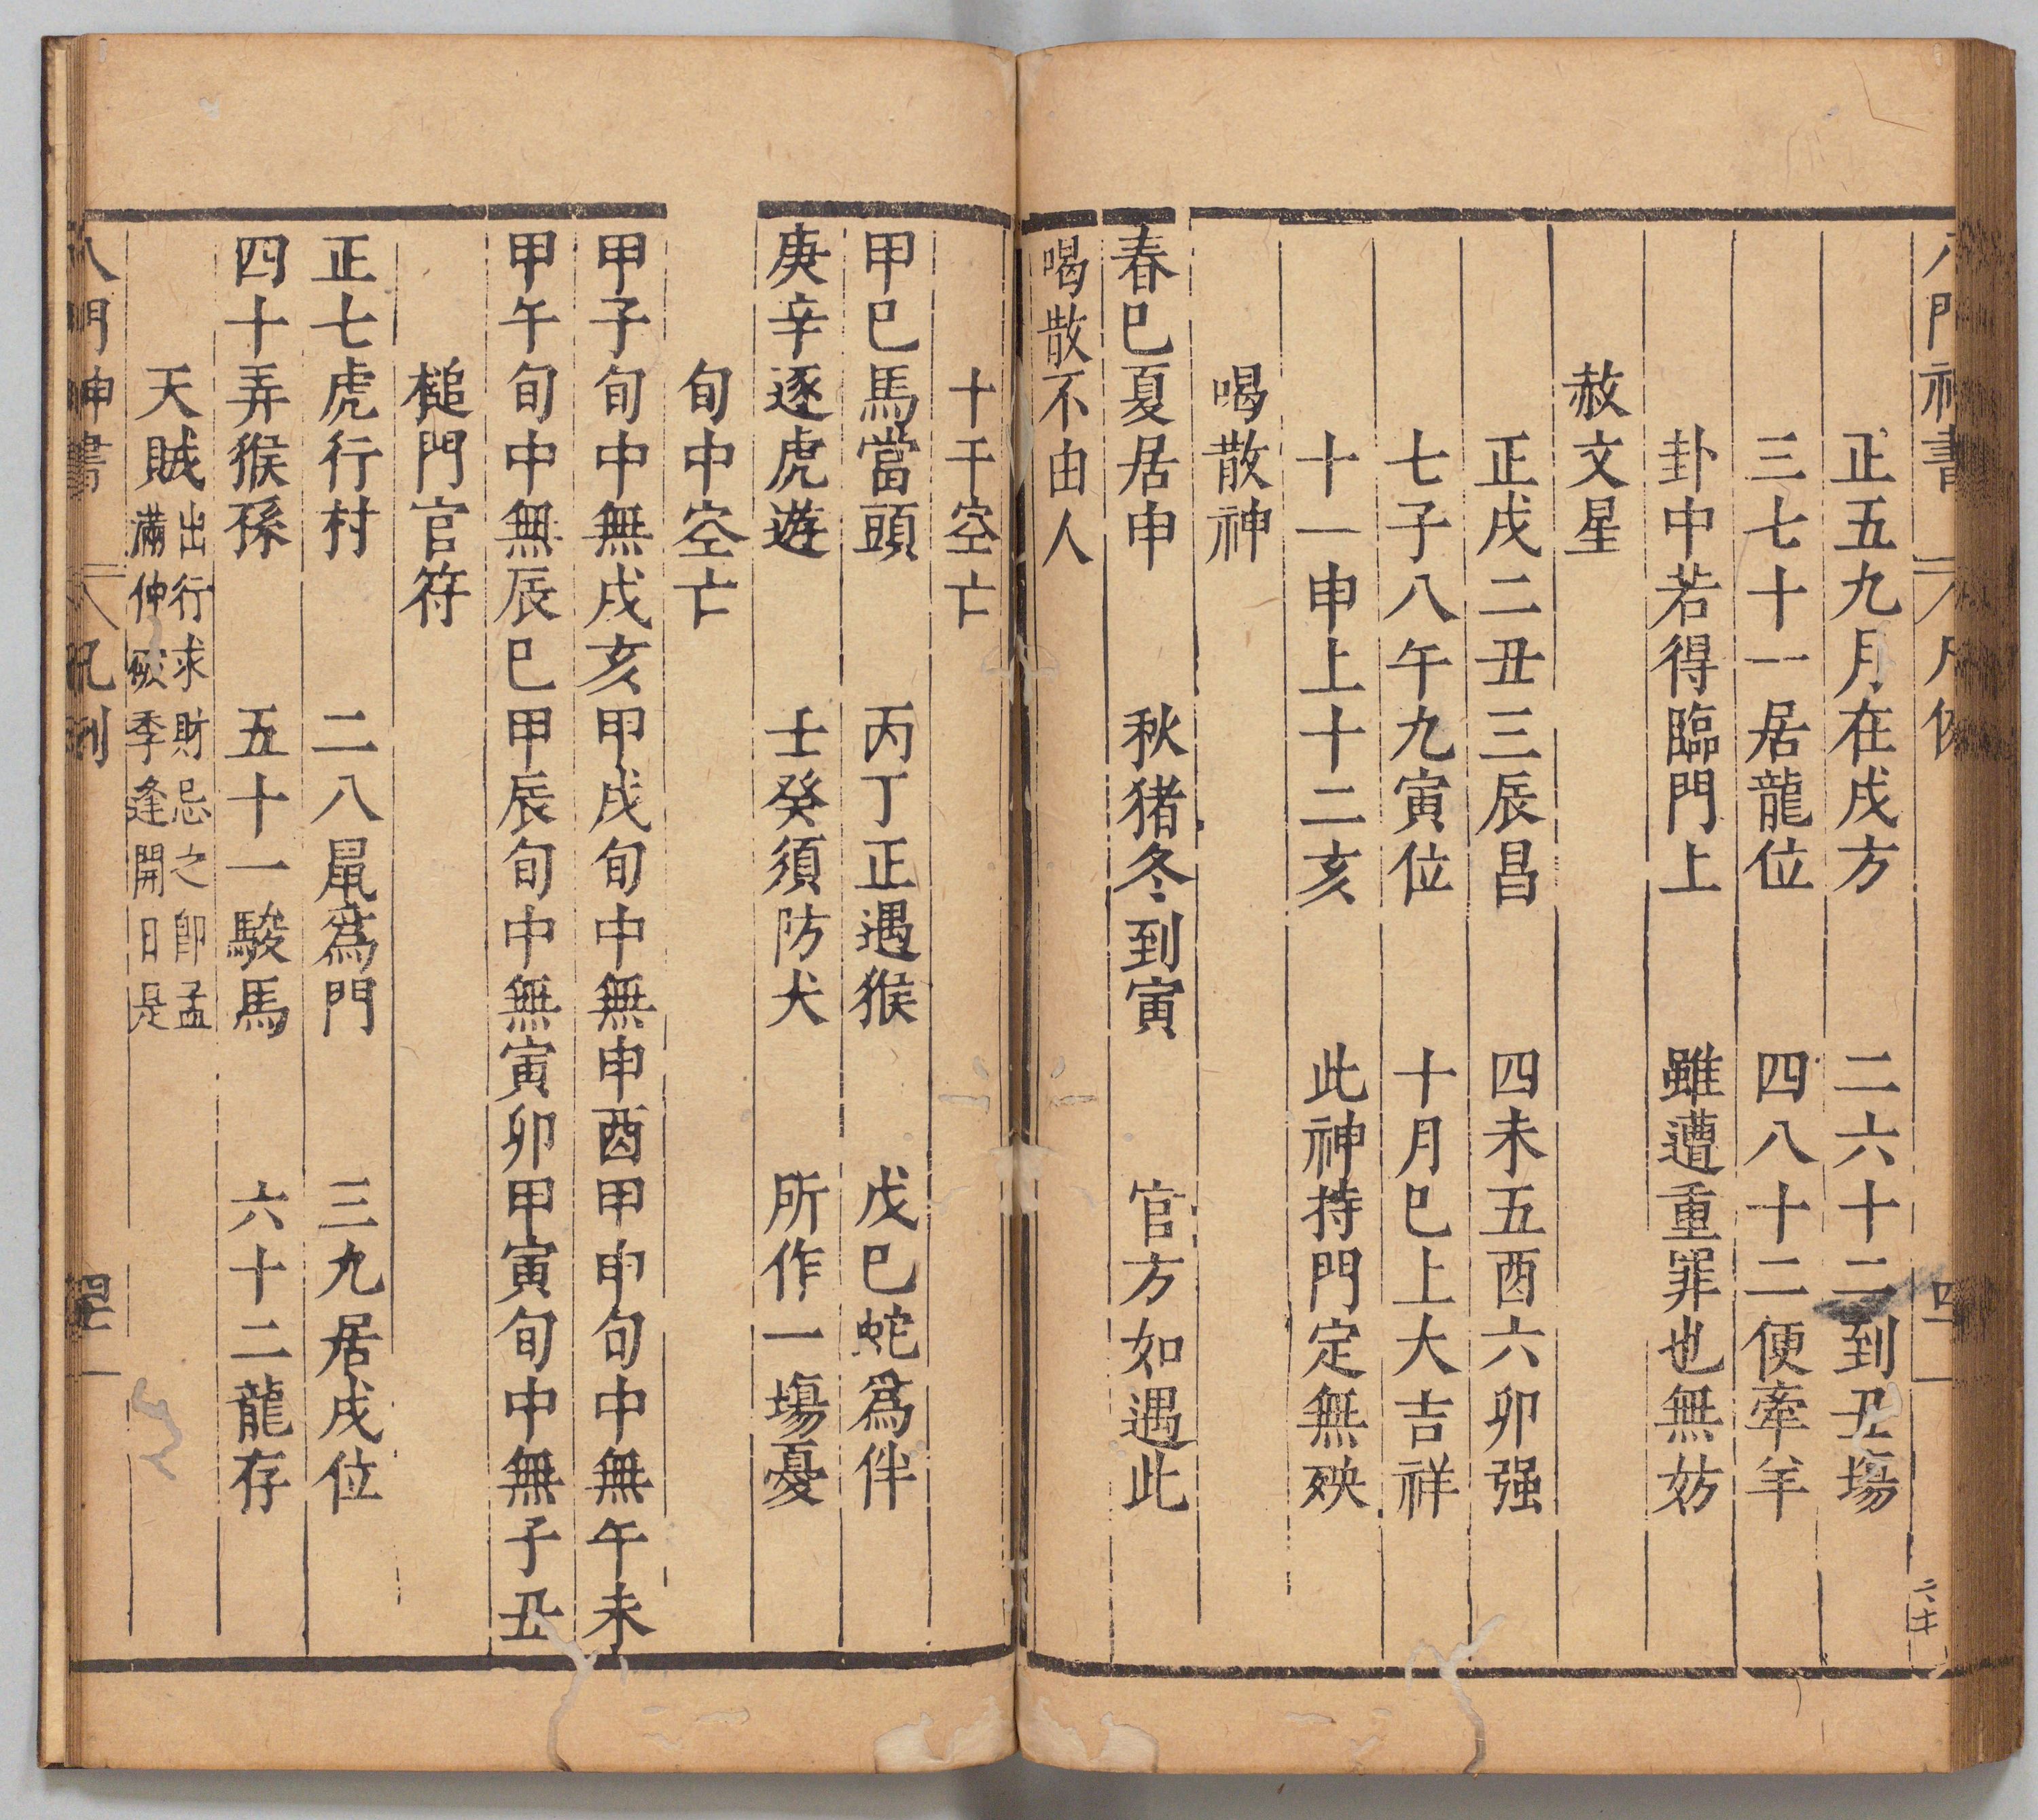 正五九月在戌方　二六十二到丑場
三七十一居龍位　四八十二便牽羊
卦中若得臨門上　雖遭重罪也無妨
赦文星
正戌二丑三辰昌　四未五酉六卯强
七子八午九寅位　十月巳上大吉祥
十一申上十二亥　此神持門定無殃
喝散神
春巳夏居申　秋猪冬到寅　官方如遇此
喝散不由人
十干空亡
甲巳馬當頭　丙丁正遇猴　戊巳蛇爲伴
庚辛逐虎遊　壬癸須防犬　所作一場憂
旬中空亡
甲子旬中無戌亥甲戌旬中無申酉甲申旬中無午未
甲午旬中無辰巳甲辰旬中無寅卯甲寅旬中無子丑
槌門官符
正七虎行村　二八鼠爲門　三九居戌位
四十弄猴孫　五十一駿馬　六十二龍存
天賊
出行求財忌之卽孟
滿仲破季逢開日是
八門神書　凡例